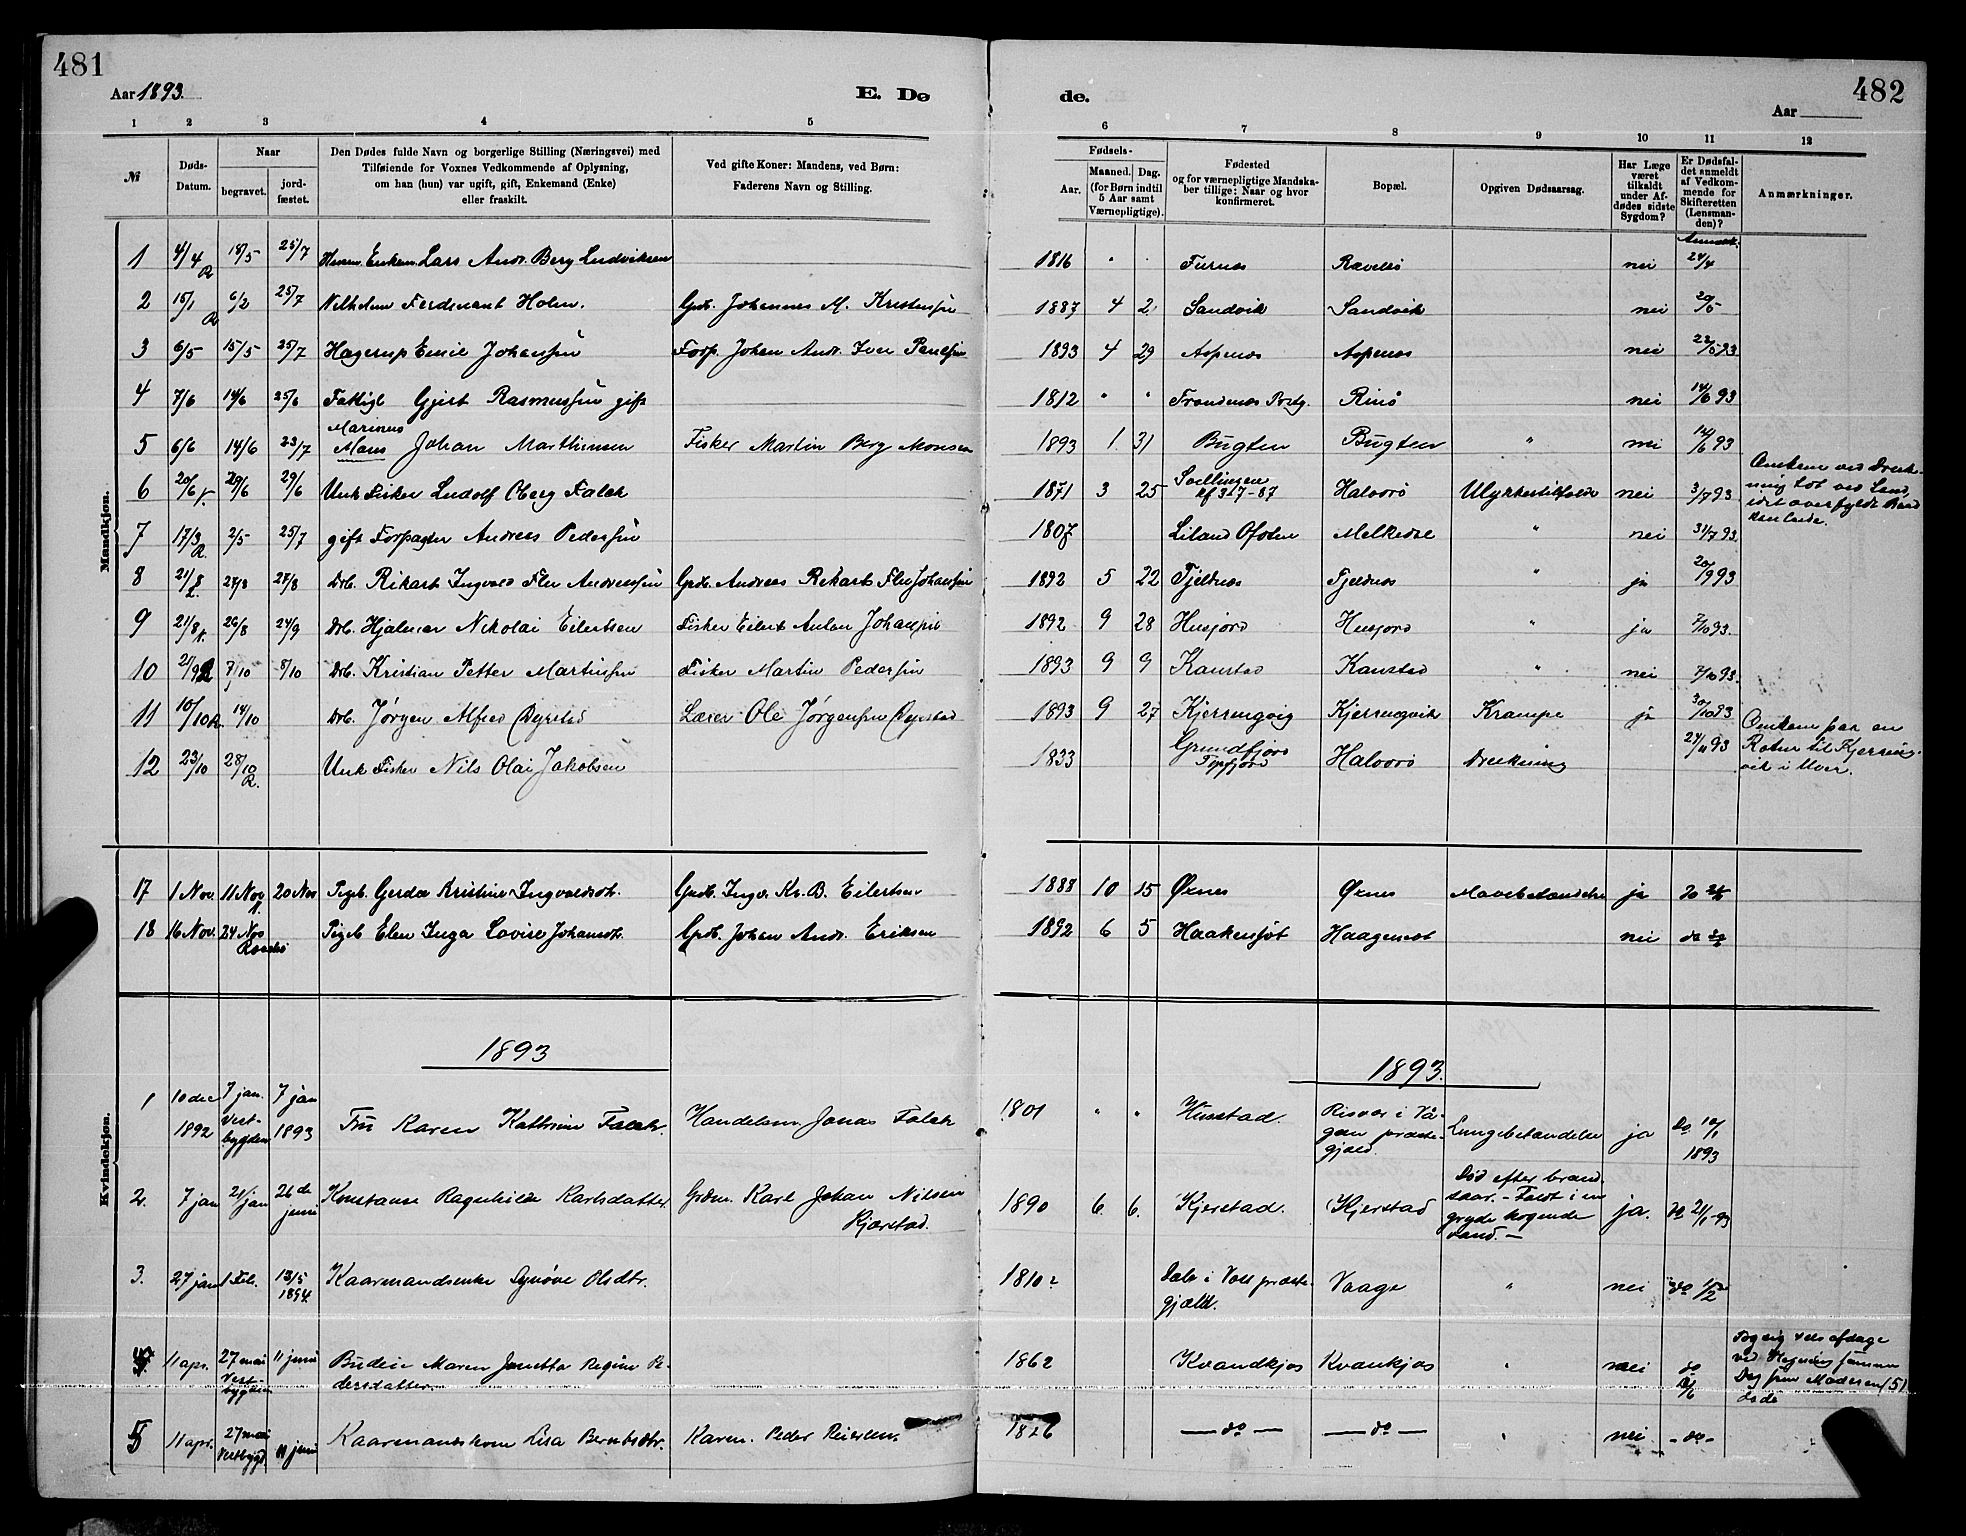 481
482
Aar 1893.
E. Dø
de.
Aar
1
2
3
4
5
6
7
8
9
10
11
12
№
Døds-Datum.
Naar
begravet.
jord-fæstet.
Den Dødes fulde Navn og borgerlige Stilling (Næringsvei) med
Tilføiende for Voxnes Vedkommende af Oplysning,
om han (hun) var ugift, gift, Enkemand (Enke)
eller fraskilt.
Ved gifte Koner: Mandens, ved Børn:
Faderens Navn og Stilling.
Fødsels-
Aar.
Maaned. Dag.
(for Børn indtil
5 Aar samt
Værnepligtige).
Fødested
og for værnepligtige Mandska-
ber tillige: Naar og hvor
konfirmeret.
Bopæl.
Opgiven Dødsaarsag.
Har Læge
været
tilkaldt
under Af-
dødes sidste
Sygdom?
Er Dødsfal-
det anmeldt
af Vedkom-
mende for
Skifteretten
(Lensman-
den)?
Anmærkninger.
Mandkjøn.
1 4/4 R 18/5 25/7 Enkem. Lars Andr. Berg Ludviksen 1816 " Furnes nei 24/4
2 15/1 R 6/2 25/7 Ferdinant Holm. Gdb. Johannes M. Kristensen 1887 4 2 Sandvik Sandvik nei 20/5
3 6/5 15/5 25/7 Hagerup Emil Johansen Forp. Johan Andr. Iver Paulsen 1893 4 29 Aspenes Aspenes nei 22/5 93
4 7/6 14/6 25/6 Fattigl Gjert Rasmussen gift 1812 " " Trondenes Prstg. Rinø nei 14/6 93
5 6/6 14/6 23/7 Marinus
Mons Johan Marthinsen Fisker Martin Berg Monsen 1893 1. 31 Bugten Bugten " nei 14/6 93
6 20/6 29/6 29/6 Unk Fisker Ludolf Oberg Falch 1871 3 25 kf 3/7-87 Halvorø Ulykkestilfælde nei 3/7 93
Omkom ved Druk-
7 17/3 R. 2/5 25/7 gift Forpagter Andreas Pedersen 1807 Liland Ofoten Melkedal " nei 31/7 93
8 21/8 27/8 27/8 Drb. Rikart Ingvald Andreassen Gdb. Andreas Rekart Johansen 1892 5 22 Tjeldnes Tjeldnes " ja 20/9 93
9 21/8 26/8 24/9 Drb. Hjalmar Nikolai Eilertsen Fisker Eilert Anton Johansen 1892 9 28 Husjord Husjord " ja 7/10 93.
10 21/9 R 7/10 8/10 Drb. Kristian Petter Martinsen Fisker Martin Pedersen 1893 9 9 Kanstad Kanstad " nei 7/10 93.
11 10/10 R. 14/10 Drb. Jørgen Alfred Dyrstad Lærer Ole Jørgensen Dyrstad 1893 9 27 Kjerringvig Kjerringvik Krampe ja 30/10 93
12 23/10 28/10 R. Unk Fisker Nils Olai Jakobsen 1833 Grundfjord Halvorø Drukning 24/11 93
Omkom paa en
Rotur til Kjerring-
vik i Uver.
17 1 Nov. 11 Nov 20 Nov Pigeb. Gerda Kristine Ingvaldsdt. Gdb. Ingv. Kr. B. Eilertsen 1888 10 15 Øxnes Øxnes ja do
18 16 Nov. 24 Nov Pigeb Elen Inga Lovise Johansdt. Gdb. Johan Andr. Eriksen 1892 6 5 nei do
1893
1893.
Kvindekjøn.
1 10 dec 1892 7 jan. Vest-
bygden 7 jan 1893 Fru Karen Kathrine Falch. Handelsm. Jonas Falch 1801 " " Risvær i Vå-
gan præste-
gjæld. Lungebetændelse ja Do 10/1 1893
2. 7 jan 21/jan 26de juni Konstanse Ragnhilde Karlsdatter. Grdm. Karl Johan Nilsen
Kjærstad. 1890 6. 6. Kjerstad. Kjerstad Død efter brand-
saar. - Faldt i en
gryde kogende
vand. - ja. do 21/1-93
3. 27 jan 1 Feb. 13/5 1894. Kaarmandsenke Synøve Olsdtr. 1810? Dale i Voss præste-
gjæld. Vaage " nei do 1/2
4 11 apr. 27 mai Vest-
bygden 11 juni Budeie Maren Janetta Regine Pe-
dersdatter. 1862 Kvandkjos Kvankjos " nei do
5 11 apr. 27 mai Vestbygd. 11 juni Kaarmandskone Lisa Berntsdtr. Karem. Peder 1826 — do — — do — " nei - do -